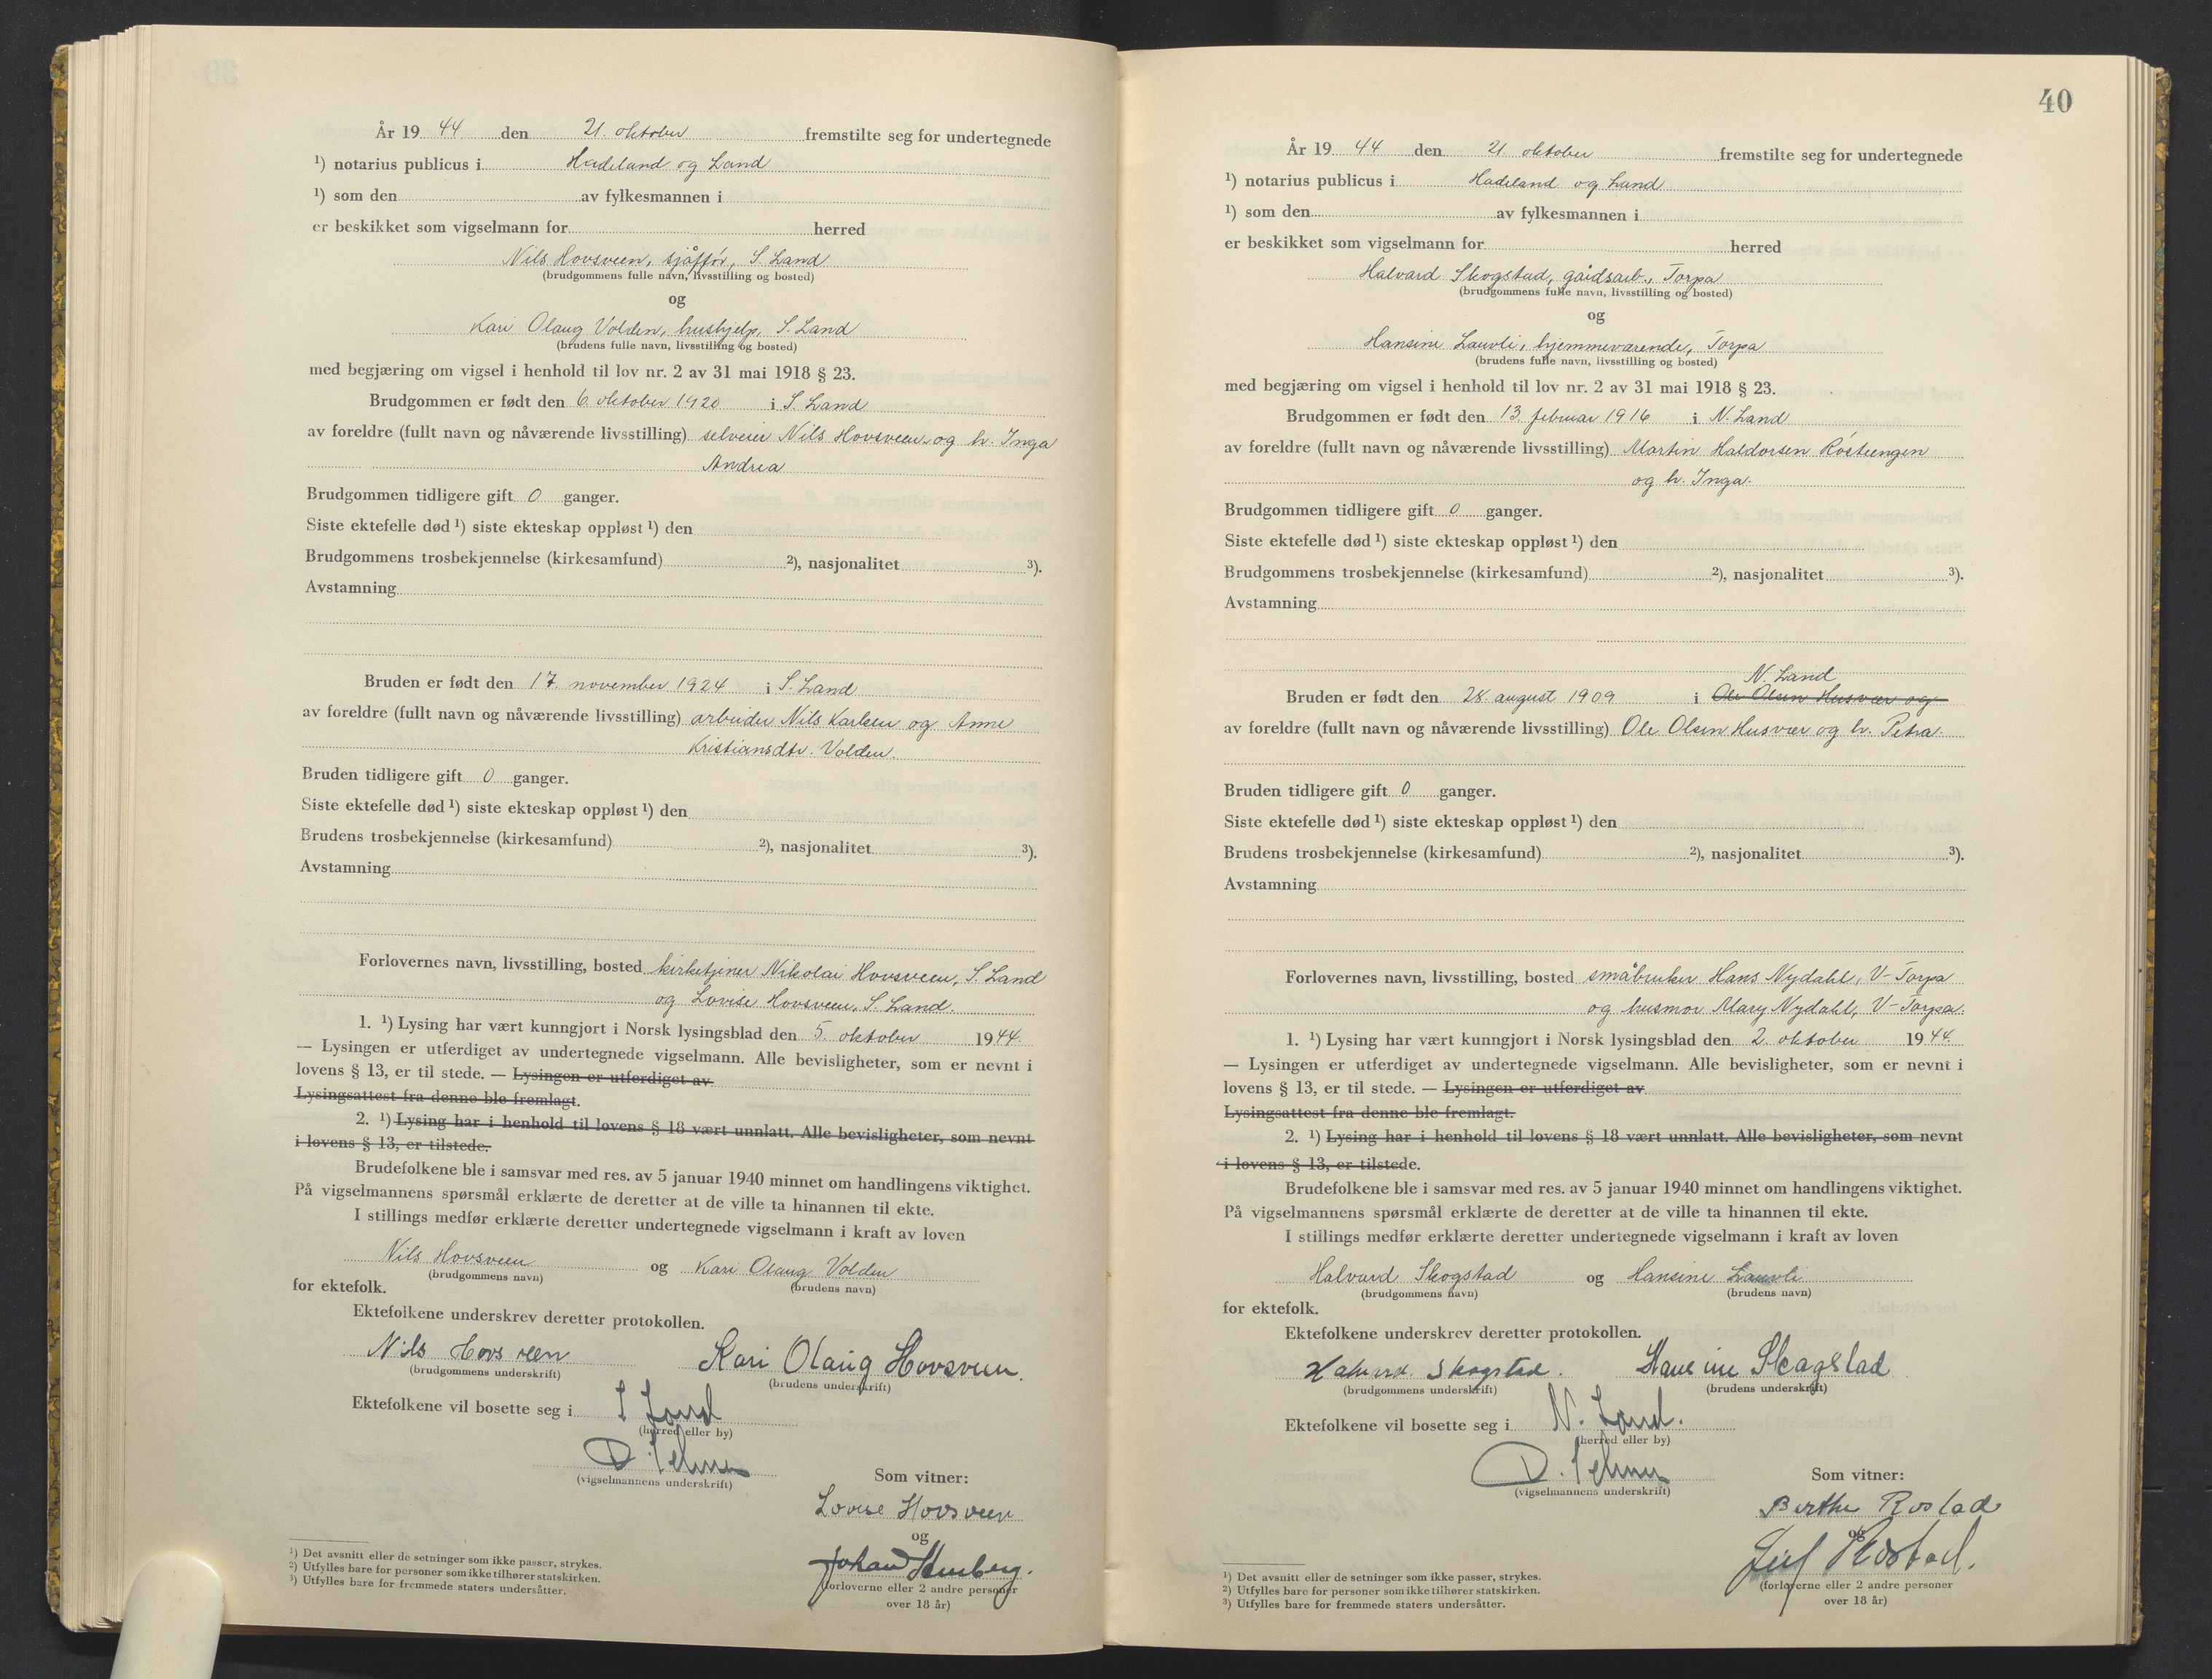 År 19 44 den 21. oktober fremstilte seg for undertegnede
¹) notarius publicus i Hadeland og Land
¹) som den av fylkesmannen i
er beskikket som vigselmann for herred
Nils Hovsveen, sjåffør, S. Land
(brudgommens fulle navn, livsstilling og bosted)
og
Kari Olaug Volden, hushjelp, S. Land
(brudens fulle navn, livsstilling og bosted)
med begjæring om vigsel i henhold til lov nr. 2 av 31 mai 1918 § 23.
Brudgommen er født den 6. oktober 1920 i S. Land
av foreldre (fullt navn og nåværende livsstilling) selveier Nils Hovsveen og h. Inga
Andrea
Brudgommen tidligere gift 0 ganger.
Siste ektefelle død ¹) siste ekteskap oppløst ¹) den
Brudgommens trosbekjennelse (kirkesamfund) ²), nasjonalitet ³).
Avstamning
Bruden er født den 17. november 1924 i S. Land
av foreldre (fullt navn og nåværende livsstilling) arbeider Nils Karlsen og Anne
Kristiansdtr. Volden.
Bruden tidligere gift 0 ganger.
Siste ektefelle død ¹) siste ekteskap oppløst ¹) den
Brudens trosbekjennelse (kirkesamfund) ²), nasjonalitet ³).
Avstamning
Forlovernes navn, livsstilling, bosted kirketjener Nikolai Hovsveen, S. Land
og Lovise Hovsveen, S. Land.
1. ¹) Lysing har vært kunngjort i Norsk lysingsblad den 5. oktober 1944.
— Lysingen er utferdiget av undertegnede vigselmann. Alle bevisligheter, som er nevnt i
lovens § 13, er til stede. — Lysingen er utferdiget av
Lysingsattest fra denne ble fremlagt.
2. ¹) Lysing har i henhold til lovens § 18 vært unnlatt. Alle bevisligheter, som nevnt
i lovens § 13, er tilstede.
Brudefolkene ble i samsvar med res. av 5 januar 1940 minnet om handlingens viktighet.
På vigselmannens spørsmål erklærte de deretter at de ville ta hinannen til ekte.
I stillings medfør erklærte deretter undertegnede vigselmann i kraft av loven
Nils Hovsveen og Kari Olaug Volden
(brudgommens navn) (brudens navn)
for ektefolk.
Ektefolkene underskrev deretter protokollen.
Nils Hovsveen Kari Olaug Hovsveen.
(brudgommens underskrift) (brudens underskrift)
Ektefolkene vil bosette seg i S Land
(herred eller by)
D.
(vigselmannens underskrift)
Som vitner:
Lovise Hovsveen
og
Johan
(forloverne eller 2 andre personer
over 18 år)
¹) Det avsnitt eller de setninger som ikke passer, strykes.
²) Utfylles bare for personer som ikke tilhører statskirken.
³) Utfylles bare for fremmede staters undersåtter.
40
År 19 44 den 21. oktober fremstilte seg for undertegnede
¹) notarius publicus i Hadeland og Land
¹) som den av fylkesmannen i
er beskikket som vigselmann for herred
Halvard Skogstad, gårdsarb., Torpa
(brudgommens fulle navn, livsstilling og bosted)
og
Hansine Lauvli, hjemmeværende, Torpa
(brudens fulle navn, livsstilling og bosted)
med begjæring om vigsel i henhold til lov nr. 2 av 31 mai 1918 § 23.
Brudgommen er født den 13. februar 1916 i N. Land
av foreldre (fullt navn og nåværende livsstilling) Martin Haldorsen
og h. Inga.
Brudgommen tidligere gift 0 ganger.
Siste ektefelle død ¹) siste ekteskap oppløst ¹) den
Brudgommens trosbekjennelse (kirkesamfund) ²), nasjonalitet ³).
Avstamning
N. Land
Bruden er født den 28. august 1909 i Ole Olsen Husvær og
av foreldre (fullt navn og nåværende livsstilling) Ole Olsen Husvær og h. Petra.
Bruden tidligere gift 0 ganger.
Siste ektefelle død ¹) siste ekteskap oppløst ¹) den
Brudens trosbekjennelse (kirkesamfund) ²), nasjonalitet ³).
Avstamning
Forlovernes navn, livsstilling, bosted småbruker Hans Nydahl, V-Torpa
og husmor Mary Nydahl, V-Torpa.
1. ¹) Lysing har vært kunngjort i Norsk lysingsblad den 2. oktober 1944.
— Lysingen er utferdiget av undertegnede vigselmann. Alle bevisligheter, som er nevnt i
lovens § 13, er til stede. — Lysingen er utferdiget av
Lysingsattest fra denne ble fremlagt.
2. ¹) Lysing har i henhold til lovens § 18 vært unnlatt. Alle bevisligheter, som nevnt
i lovens § 13, er tilstede.
Brudefolkene ble i samsvar med res. av 5 januar 1940 minnet om handlingens viktighet.
På vigselmannens spørsmål erklærte de deretter at de ville ta hinannen til ekte.
I stillings medfør erklærte deretter undertegnede vigselmann i kraft av loven
Halvard Skogstad og Hansine Lauvli
(brudgommens navn) (brudens navn)
for ektefolk.
Ektefolkene underskrev deretter protokollen.
Halvard. Skogstad. Hansine Skogstad
(brudgommens underskrift) (brudens underskrift)
Ektefolkene vil bosette seg i N. Land.
(herred eller by)
D.
(vigselmannens underskrift)
Som vitner:
Birthe Rostad
og
Leif Rostad.
(forloverne eller 2 andre personer
over 18 år)
¹) Det avsnitt eller de setninger som ikke passer, strykes.
²) Utfylles bare for personer som ikke tilhører statskirken.
³) Utfylles bare for fremmede staters undersåtter.